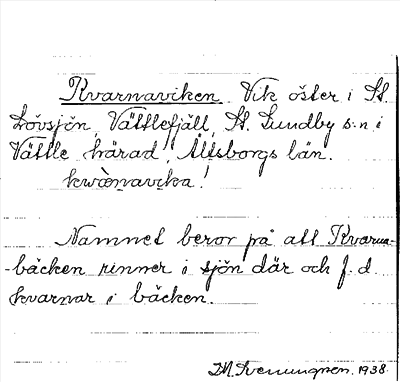 Kvarnaviken Vik öster i St.
Lövsjön, Vättlefjäll, St. Lundby s:n i
Vättle härad, Älvsborgs län.
kwànavika!
Namnet beror på att Kvarna-
-bäcken rinner i sjön där och f. d.
kvarnar i bäcken.
1938